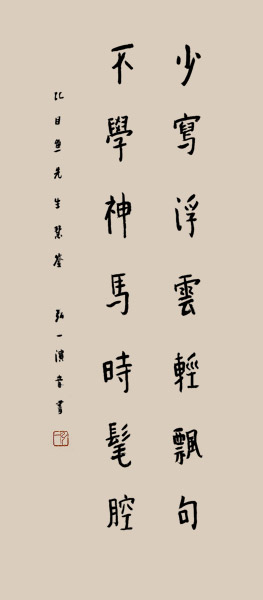 少寫浮雲輕飄句
不學神馬時髦腔
比目魚先生
弘一演音書